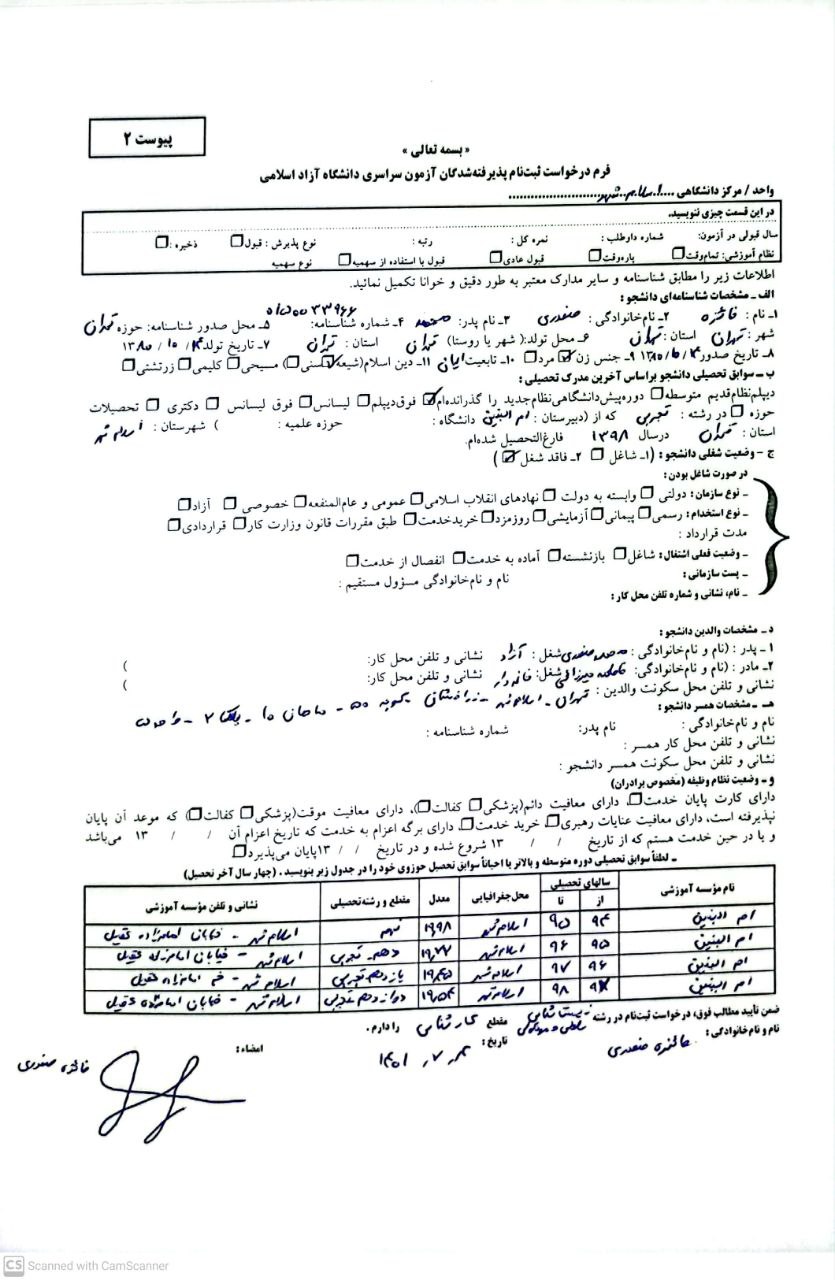 پیوست ۲
« بسمه تعالی »
فرم درخواست ثبت‌نام پذیرفته‌شدگان آزمون سراسری دانشگاه آزاد اسلامی
واحد / مرکز دانشگاهی ....اسلام شهر........................
در این قسمت چیزی ننویسید.
سال قبولی در آزمون: شماره داوطلب : نمره کل : رتبه : نوع پذیرش : قبول☐ ذخیره : ☐
نظام آموزشی: تمام‌وقت☐ پاره‌وقت☐ قبول عادی☐ قبول با استفاده از سهمیه☐ نوع سهمیه
اطلاعات زیر را مطابق شناسنامه و سایر مدارک معتبر به طور دقیق و خوانا تکمیل نمائید.
الف ـ مشخصات شناسنامه‌ای دانشجو :
۱ـ نام : فائزه ۲ـ نام‌خانوادگی : صفدری ۳ـ نام پدر: محمد ۴ـ شماره شناسنامه: ۵ـ محل صدور شناسنامه: حوزه تهران
شهر : تهران استان : تهران ۶ـ محل تولد:( شهر یا روستا) تهران استان : تهران ۷ـ تاریخ تولد ۱۳۸۰/۱۰/۰۴
۸ـ تاریخ صدور ۹ـ جنس زن☑ مرد☐ ۱۰ـ تابعیت ایران ۱۱ـ دین اسلام(شیعه☑ سنی☐) مسیحی☐ کلیمی☐ زرتشتی☐
ب ـ سوابق تحصیلی دانشجو براساس آخرین مدرک تحصیلی :
دیپلم‌نظام‌قدیم متوسطه☐ دوره‌پیش‌دانشگاهی‌نظام‌جدید را گذرانده‌ام☑ فوق‌دیپلم☐ لیسانس☐ فوق لیسانس ☐ دکتری ☐ تحصیلات
حوزه ☐ در رشته : تجربی که از (دبیرستان : ام البنین دانشگاه : حوزه علمیه : ) شهرستان : اسلام شهر
استان : تهران درسال ۱۳۹۸ فارغ‌التحصیل شده‌ام.
ج ـ وضعیت شغلی دانشجو : (۱ـ شاغل ☐ ۲ـ فاقد شغل☑ )
در صورت شاغل بودن:
ـ نوع سازمان: دولتی ☐ وابسته به دولت ☐ نهادهای انقلاب اسلامی☐ عمومی و عام‌المنفعه☐ خصوصی ☐ آزاد☐
ـ نوع استخدام : رسمی☐ پیمانی☐ آزمایشی☐ روزمزد☐ خرید‌خدمت☐ طبق مقررات قانون وزارت کار☐ قراردادی☐
مدت قرارداد :
ـ وضعیت فعلی اشتغال: شاغل☐ بازنشسته☐ آماده به خدمت☐ انفصال از خدمت☐
ـ پست سازمانی : نام و نام‌خانوادگی مسؤول مستقیم :
ـ نام، نشانی و شماره تلفن محل کار :
د ـ مشخصات والدین دانشجو :
۱ـ پدر : (نام و نام‌خانوادگی: محمد صفدری شغل : آزاد نشانی و تلفن محل کار: )
۲ـ مادر : (نام و نام‌خانوادگی: شغل: خانه دار نشانی و تلفن محل کار: )
نشانی و تلفن محل سکونت والدین : تهران - اسلام شهر - کوچه - ساختمان ۱۰ - پلاک ۲ - واحد
هـ ـ مشخصات همسر دانشجو :
نام و نام‌خانوادگی : نام پدر: شماره شناسنامه :
نشانی و تلفن محل کار همسر :
نشانی و تلفن محل سکونت همسر دانشجو :
و ـ وضعیت نظام وظیفه (مخصوص برادران)
دارای کارت پایان خدمت☐، دارای معافیت دائم(پزشکی☐ کفالت☐)، دارای معافیت موقت(پزشکی☐ کفالت☐) که موعد آن پایان
نپذیرفته است، دارای معافیت عنایات رهبری☐ خرید خدمت☐، دارای برگه اعزام به خدمت که تاریخ اعزام آن / / ۱۳ می‌باشد
و یا در حین خدمت هستم که از تاریخ / / ۱۳ شروع شده و در تاریخ / / ۱۳ پایان می‌پذیرد☐
ـ لطفاً سوابق تحصیلی دوره متوسطه و بالاتر یا احیاناً سوابق تحصیل حوزوی خود را در جدول زیر بنویسید . (چهار سال آخر تحصیل)
نام مؤسسه آموزشی سالهای تحصیلی از تا محل جغرافیایی معدل مقطع و رشته تحصیلی نشانی و تلفن مؤسسه آموزشی
ام البنین ۹۴ ۹۵ اسلام شهر ۱۹,۹۸ نهم اسلام شهر - خیابان امامزاده عقیل
ام البنین ۹۵ ۹۶ اسلام شهر ۱۹,۷۷ دهم - تجربی اسلام شهر - خیابان امامزاده عقیل
ام البنین ۹۶ ۹۷ اسلام شهر ۱۹,۴۵ یازدهم تجربی اسلام شهر - خ امامزاده عقیل
ام البنین ۹۷ ۹۸ اسلام شهر ۱۹,۵۴ دوازدهم تجربی اسلام شهر - خیابان امامزاده عقیل
ضمن تأیید مطالب فوق، درخواست ثبت‌نام در رشته زیست شناسی سلولی و مولکولی مقطع کارشناسی را دارم .
نام و نام‌خانوادگی : فائزه صفدری تاریخ : ۱۴۰۱ امضاء : فائزه صفدری
CS Scanned with CamScanner